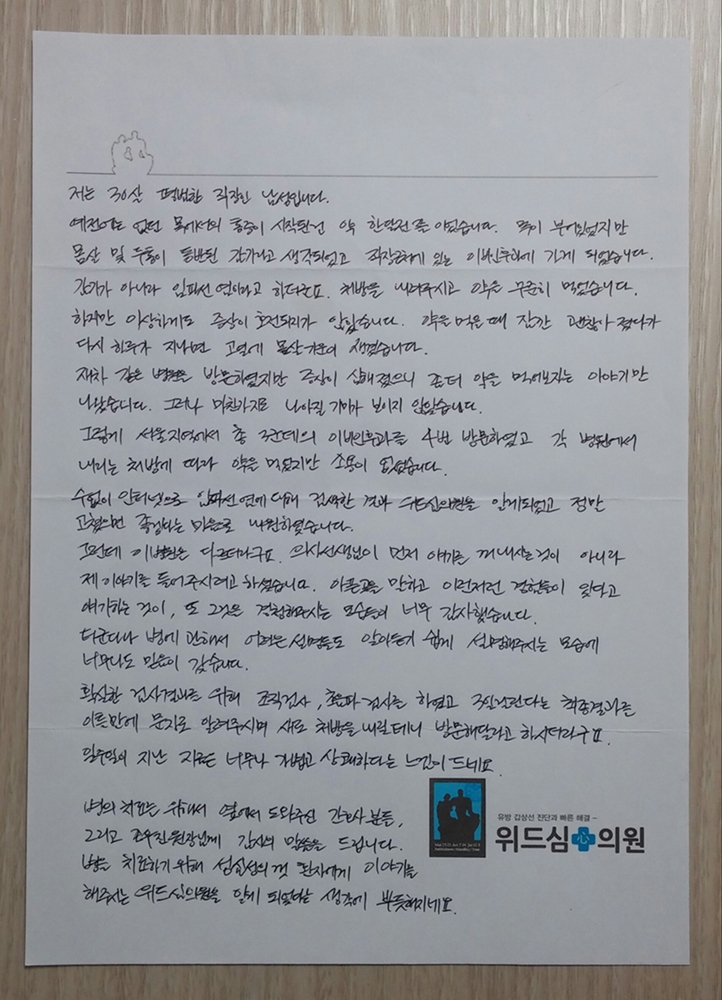 저는 30살 평범한 직장인 남성입니다.
예전에도 없던 목에서의 통증이 시작된건 약 한달전쯤 이었습니다. 목이 부어있었지만
몸살 및 두통이 동반된 감기라고 생각되었고 직장근처에 있는 이비인후과에 가게 되었습니다.
감기가 아니라 임파선염이라고 하더군요. 처방을 내려주시고 약을 꾸준히 먹었습니다.
하지만 이상하게도 증상이 호전되지가 않았습니다. 약을 먹을때 잠깐 괜찮아 졌다가
다시 하루가 지나면 고열에 몸살기운이 생겼습니다.
재차 같은 병원을 방문하였지만 증상이 심해졌으니 좀더 약을 먹어보자는 이야기만
나왔습니다. 그러나 마찬가지로 나아질 기미가 보이지 않았습니다.
그렇게 서울지역에서 총 3군데의 이비인후과를 4번 방문하였고 각 병원에서
내리는 처방에 따라 약을 먹었지만 소용이 없었습니다.
수없이 인터넷으로 임파선염에 대해 검색한 결과 위드심의원을 알게되었고 정말
고쳤으면 좋겠다는 마음으로 내원하였습니다.
그런데 이병원은 다르더라구요. 의사선생님이 먼저 얘기를 꺼내시는것이 아니라
제 이야기를 들어주시려고 하셨습니다. 아픈곳을 말하고 이런저런 경험들이 있다고
얘기하는 것이, 또 그것을 경청해주시는 모습들이 너무 감사했습니다.
더군다나 병에 관해서 어려운 설명들도 알아듣기 쉽게 설명해주시는 모습에
너무나도 믿음이 갔습니다.
확실한 검사결과를 위해 조직검사, 초음파 검사를 하였고 3일걸린다는 최종결과를
이틀만에 문자로 알려주시며 새로 처방을 내릴테니 방문해달라고 하시더라구요.
일주일이 지난 지금은 너무나 개볍고 상쾌하다는 느낌이 드네요.
병의 치료를 위해서 옆에서 도와주신 간호사 분들,
그리고 조우진 원장님께 감사의 말씀을 드립니다.
병을 치료하기 위해 성심성의껏 환자에게 이야기를
해주시는 위드심의원을 알게 되었다는 생각에 뿌듯해지네요.
유방 갑상선 진단과 빠른 해결 -
위드심 心 의원